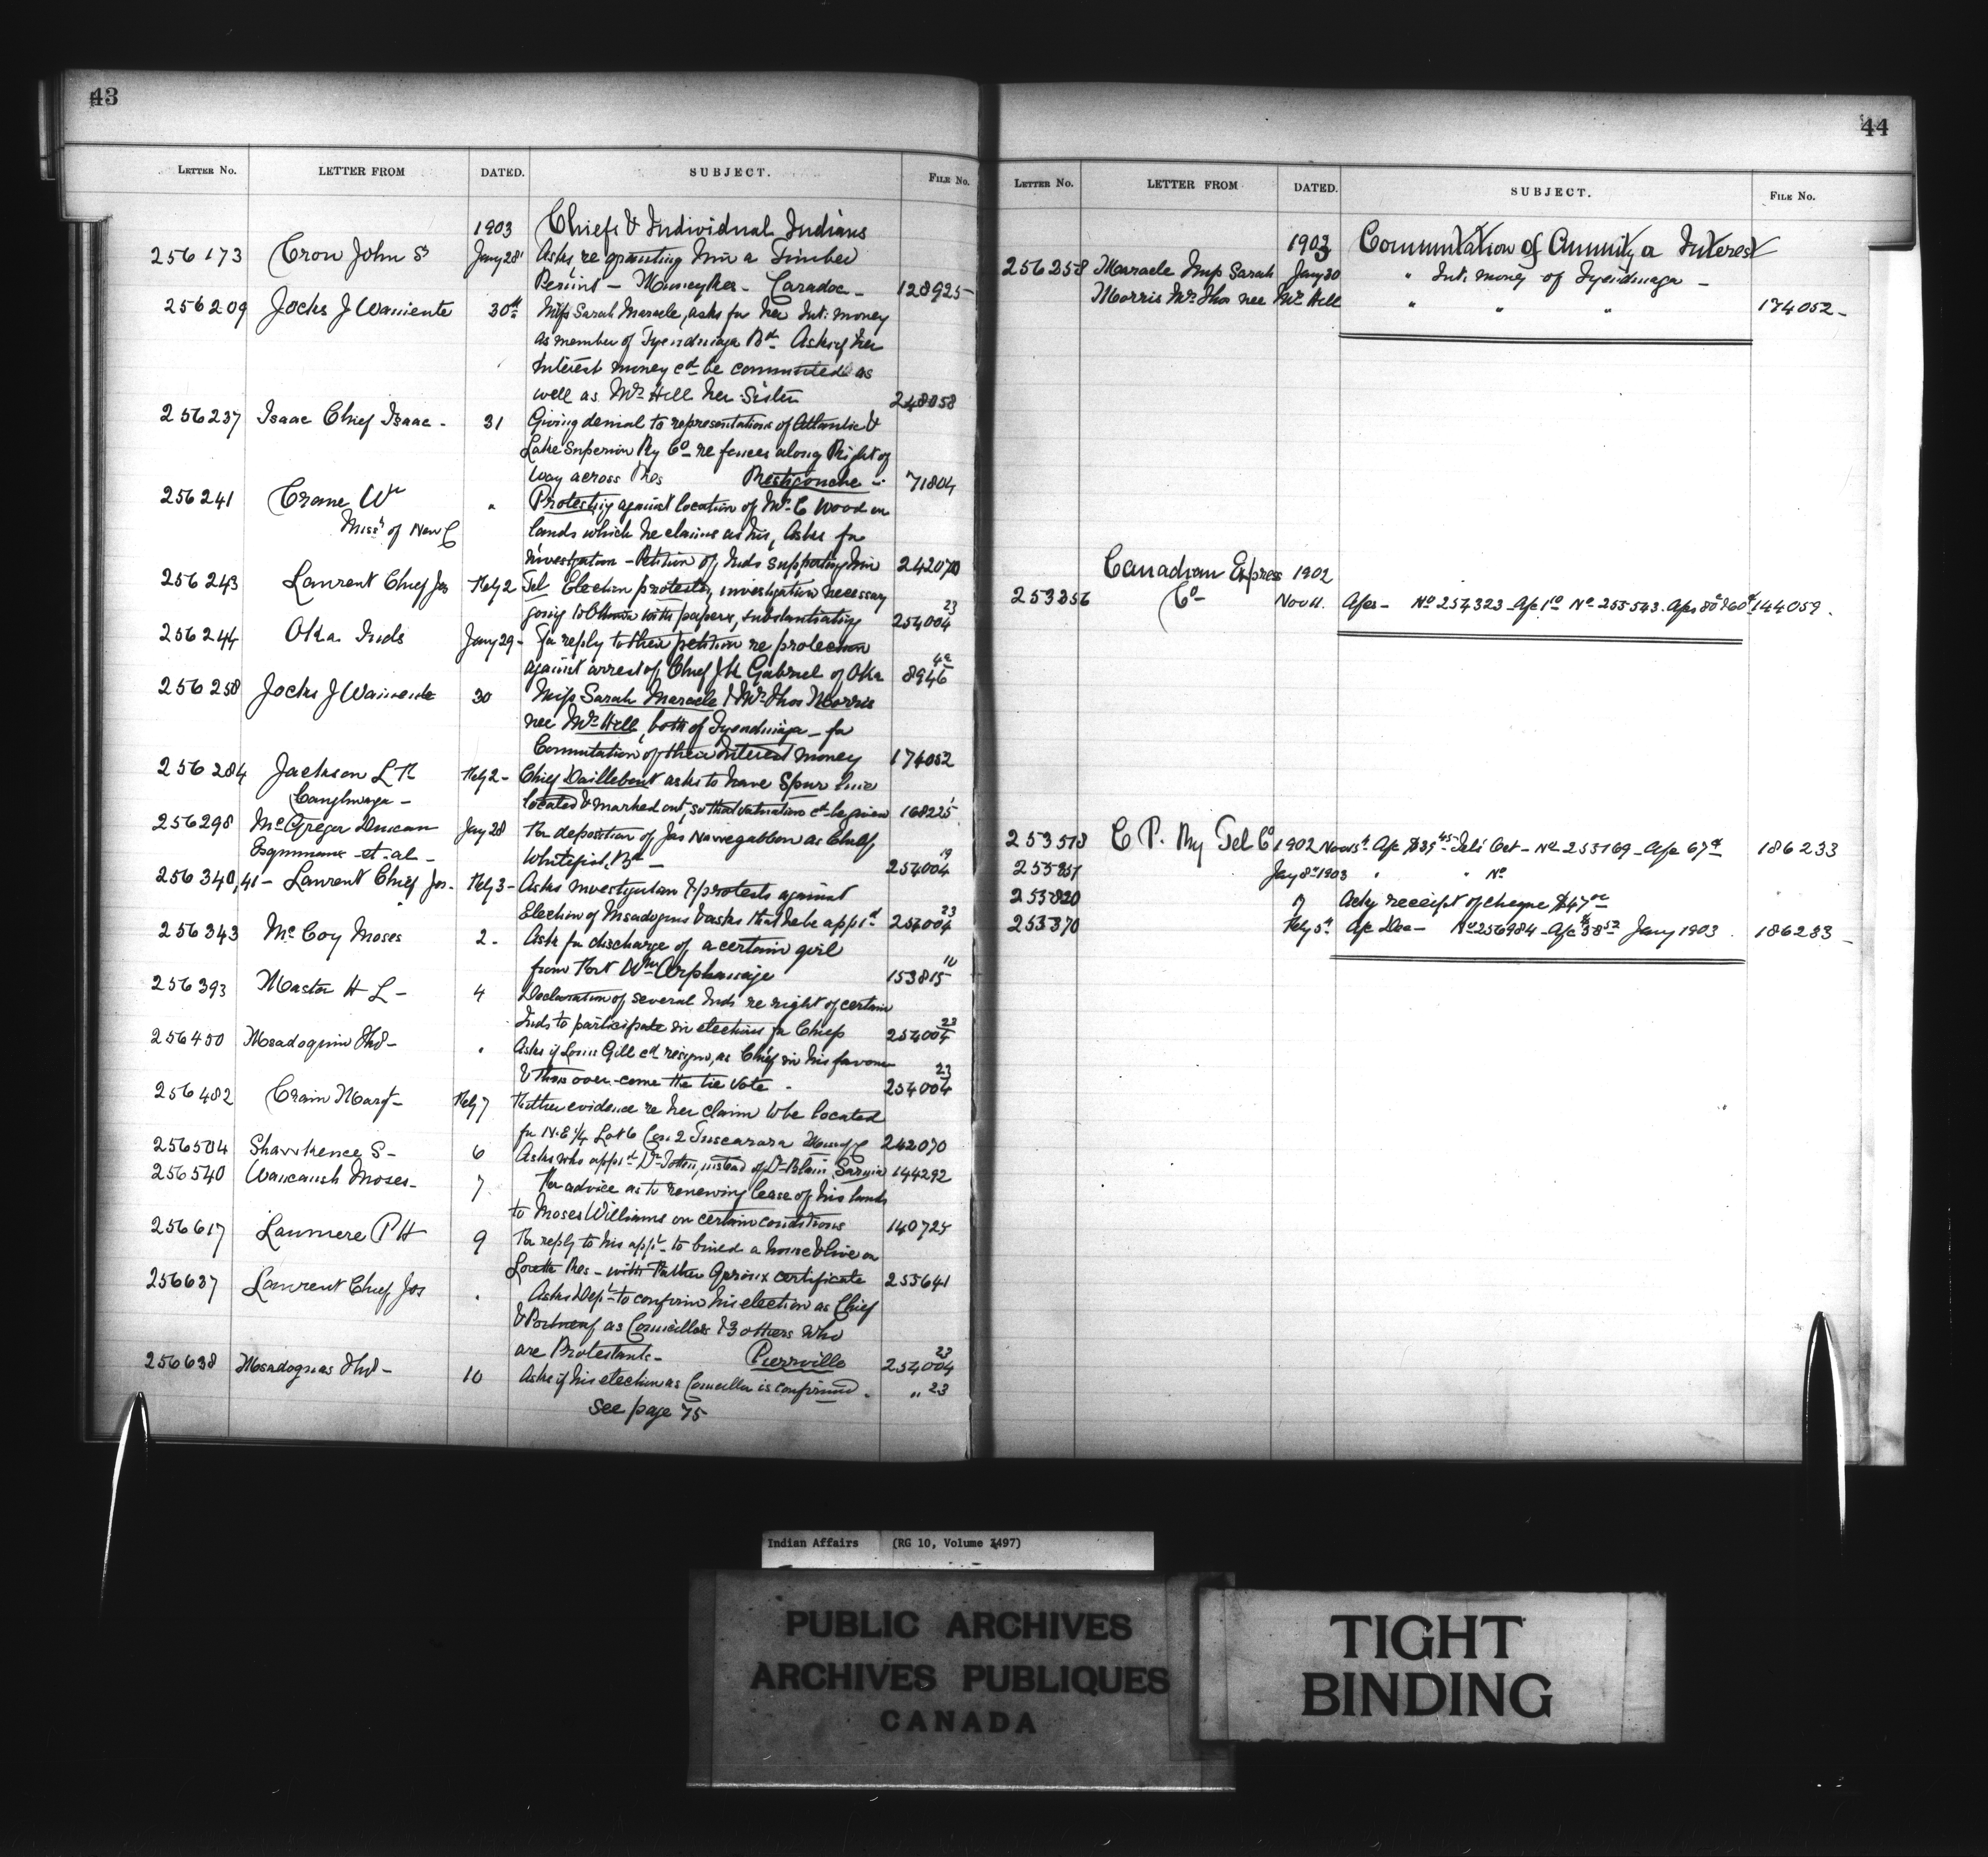 43
LETTER No. LETTER FROM DATED. SUBJECT. FILE No.
1903 Chiefs & Individual Indians
256173 Crow John S Jany 28 Asks re granting him a Timber
Permit - Munsey Res - Caradoc - 128925
256209 Jocks J Waniente 30th Miss Sarah Maracle, asks for her Int. money
as member of Tyendinaga Bd. Asks if her
interest money cd be commuted as
well as Mrs Hill her Sister 248058
256237 Isaac Chief Isaac - 31 Giving denial to representations of Atlantic &
Lake Superior Ry Co re fences along Right of
way across Res Restigouche 71804
256241 Crane Wm " Protesting against location of Mr C Wood on
Missrs of New C lands which he claims as his, Asks for
investigation - Petition of Inds supporting him 242070
256243 Laurent Chief Jos Feby 2 Tel Election protests, investigation necessary
going to Ottawa with papers, substantiating 254004 23
256244 Oka Inds Jany 29 - For reply to their petition re protection
against arrest of Chief Jh Gabriel of Oka 8946
256258 Jocks J Waniente 30 Miss Sarah Maracle & Mrs Thos Morris
nee Mrs Hill, both of Tyendinaga - for
Commutation of their Interest money 174052
256284 Jackson L R Feby 2 - Chief Daillebout asks to have Spur line
Caughnaga - located & marked out, so that valuation cd be given 168225
256298 McGregor Duncan Jany 28 For deposition of Jas Nawegabbow as Chief
Esquimaux et. al - Whitefish, Bd - 254004 19
256340,41 - Laurent Chief Jos. Feby 3 - Asks investigation & protests against
Election of Msadoques & asks that he be appt 254004 23
256343 McCoy Moses 2 - Asks for discharge of a certain girl
from Fort Wm Orphanage 153815 10
256393 Masta H L - 4 Declaration of several Inds re right of certain
Inds to participate in elections for Chiefs 254004 23
256450 Msadoquin Thd - " Asks if Louis Gill cd resign, as Chief in his favour
& thus over-come the tie vote - 254004 23
256482 Crain Margt - Feby 7 Further evidence re her claim to be located
for N.E ¼ Lot 6 Con 2 Tuscarora 242070
256504 Shawkence S - 6 Asks who apptd Dr Totten, instead of Dr Blain, Sarnia 144292
256540 Wawanosh Moses - 7 For advice as to renewing lease of his lands
to Moses Williams on certain conditions 140725
256617 Laumere P H 9 For reply to his appn to build a house & live on
Lorette Res - with Father Giroux certificate 255641
256637 Laurent Chief Jos " Asks Dept to confirm his election as Chief
& Portneuf as Councillors & 3 others who
are Protestants - Pierrville 254004 23
256638 Msadoques Thd - 10 Asks if his election as Councillor is confirmed. " 23
See page 75
44
LETTER No. LETTER FROM DATED. SUBJECT. FILE No.
1903 Commutation of Annuity a Interest
256258 Maracle Miss Sarah Jany 30 " Int. money of Tyendinaga -
Morris Mrs Thos nee Mrs Hill " " " 174052 -
Canadian Express 1902
253356 Co - Nov 11. A/cs - No 254323 - A/c 1.00 No 255543. A/cs 80c & 60c 144059.
253578 C P. Ry Tel Co 1902 Nov 5th A/c $35.45 Tels Oct - No 255169 - A/c 67c 186233
255851 Jany 8th 1903 " " No
255820 9 Ackg receipt of cheque $47
255370 Feby 5th A/c Dec - No 256984 - A/c $38.52 Jany 1903. 186233 -
Indian Affairs (RG 10, Volume 3497)
PUBLIC ARCHIVES
ARCHIVES PUBLIQUES
CANADA
TIGHT
BINDING